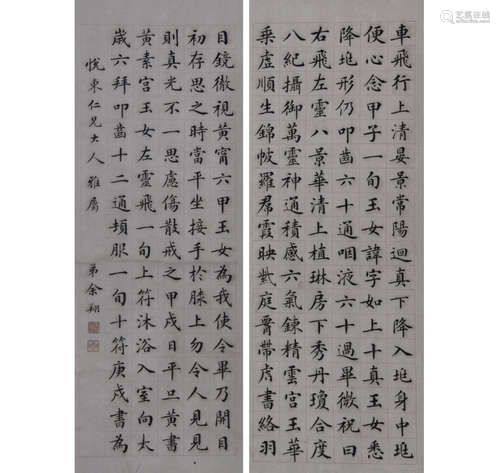 車飛行上清晏景常陽迴真下降入垗身中垗
便心念甲子一旬玉女諱字如上十真玉女悉
降垗形仍叩齒六十通咽液六十過畢微祝曰
右飛左靈八景華清上植琳房下秀丹瓊合度
八紀攝御萬靈神通積感六氣鍊精雲宮玉華
乘虛順生錦帔羅帬霞映紫庭腎帶虎書絡羽
目鏡微視黃甯六甲玉女為我使令畢乃開目
初存思之時當平坐接手於膝上勿令人見見
則真光不一思慮傷散戒之甲戌日平旦黃書
黃素宮玉女左靈飛一旬上符沐浴入室向太
歲六拜叩齒十二通頓服一旬十符庚戌書為
悅東仁兄大人雅屬 弟余翔